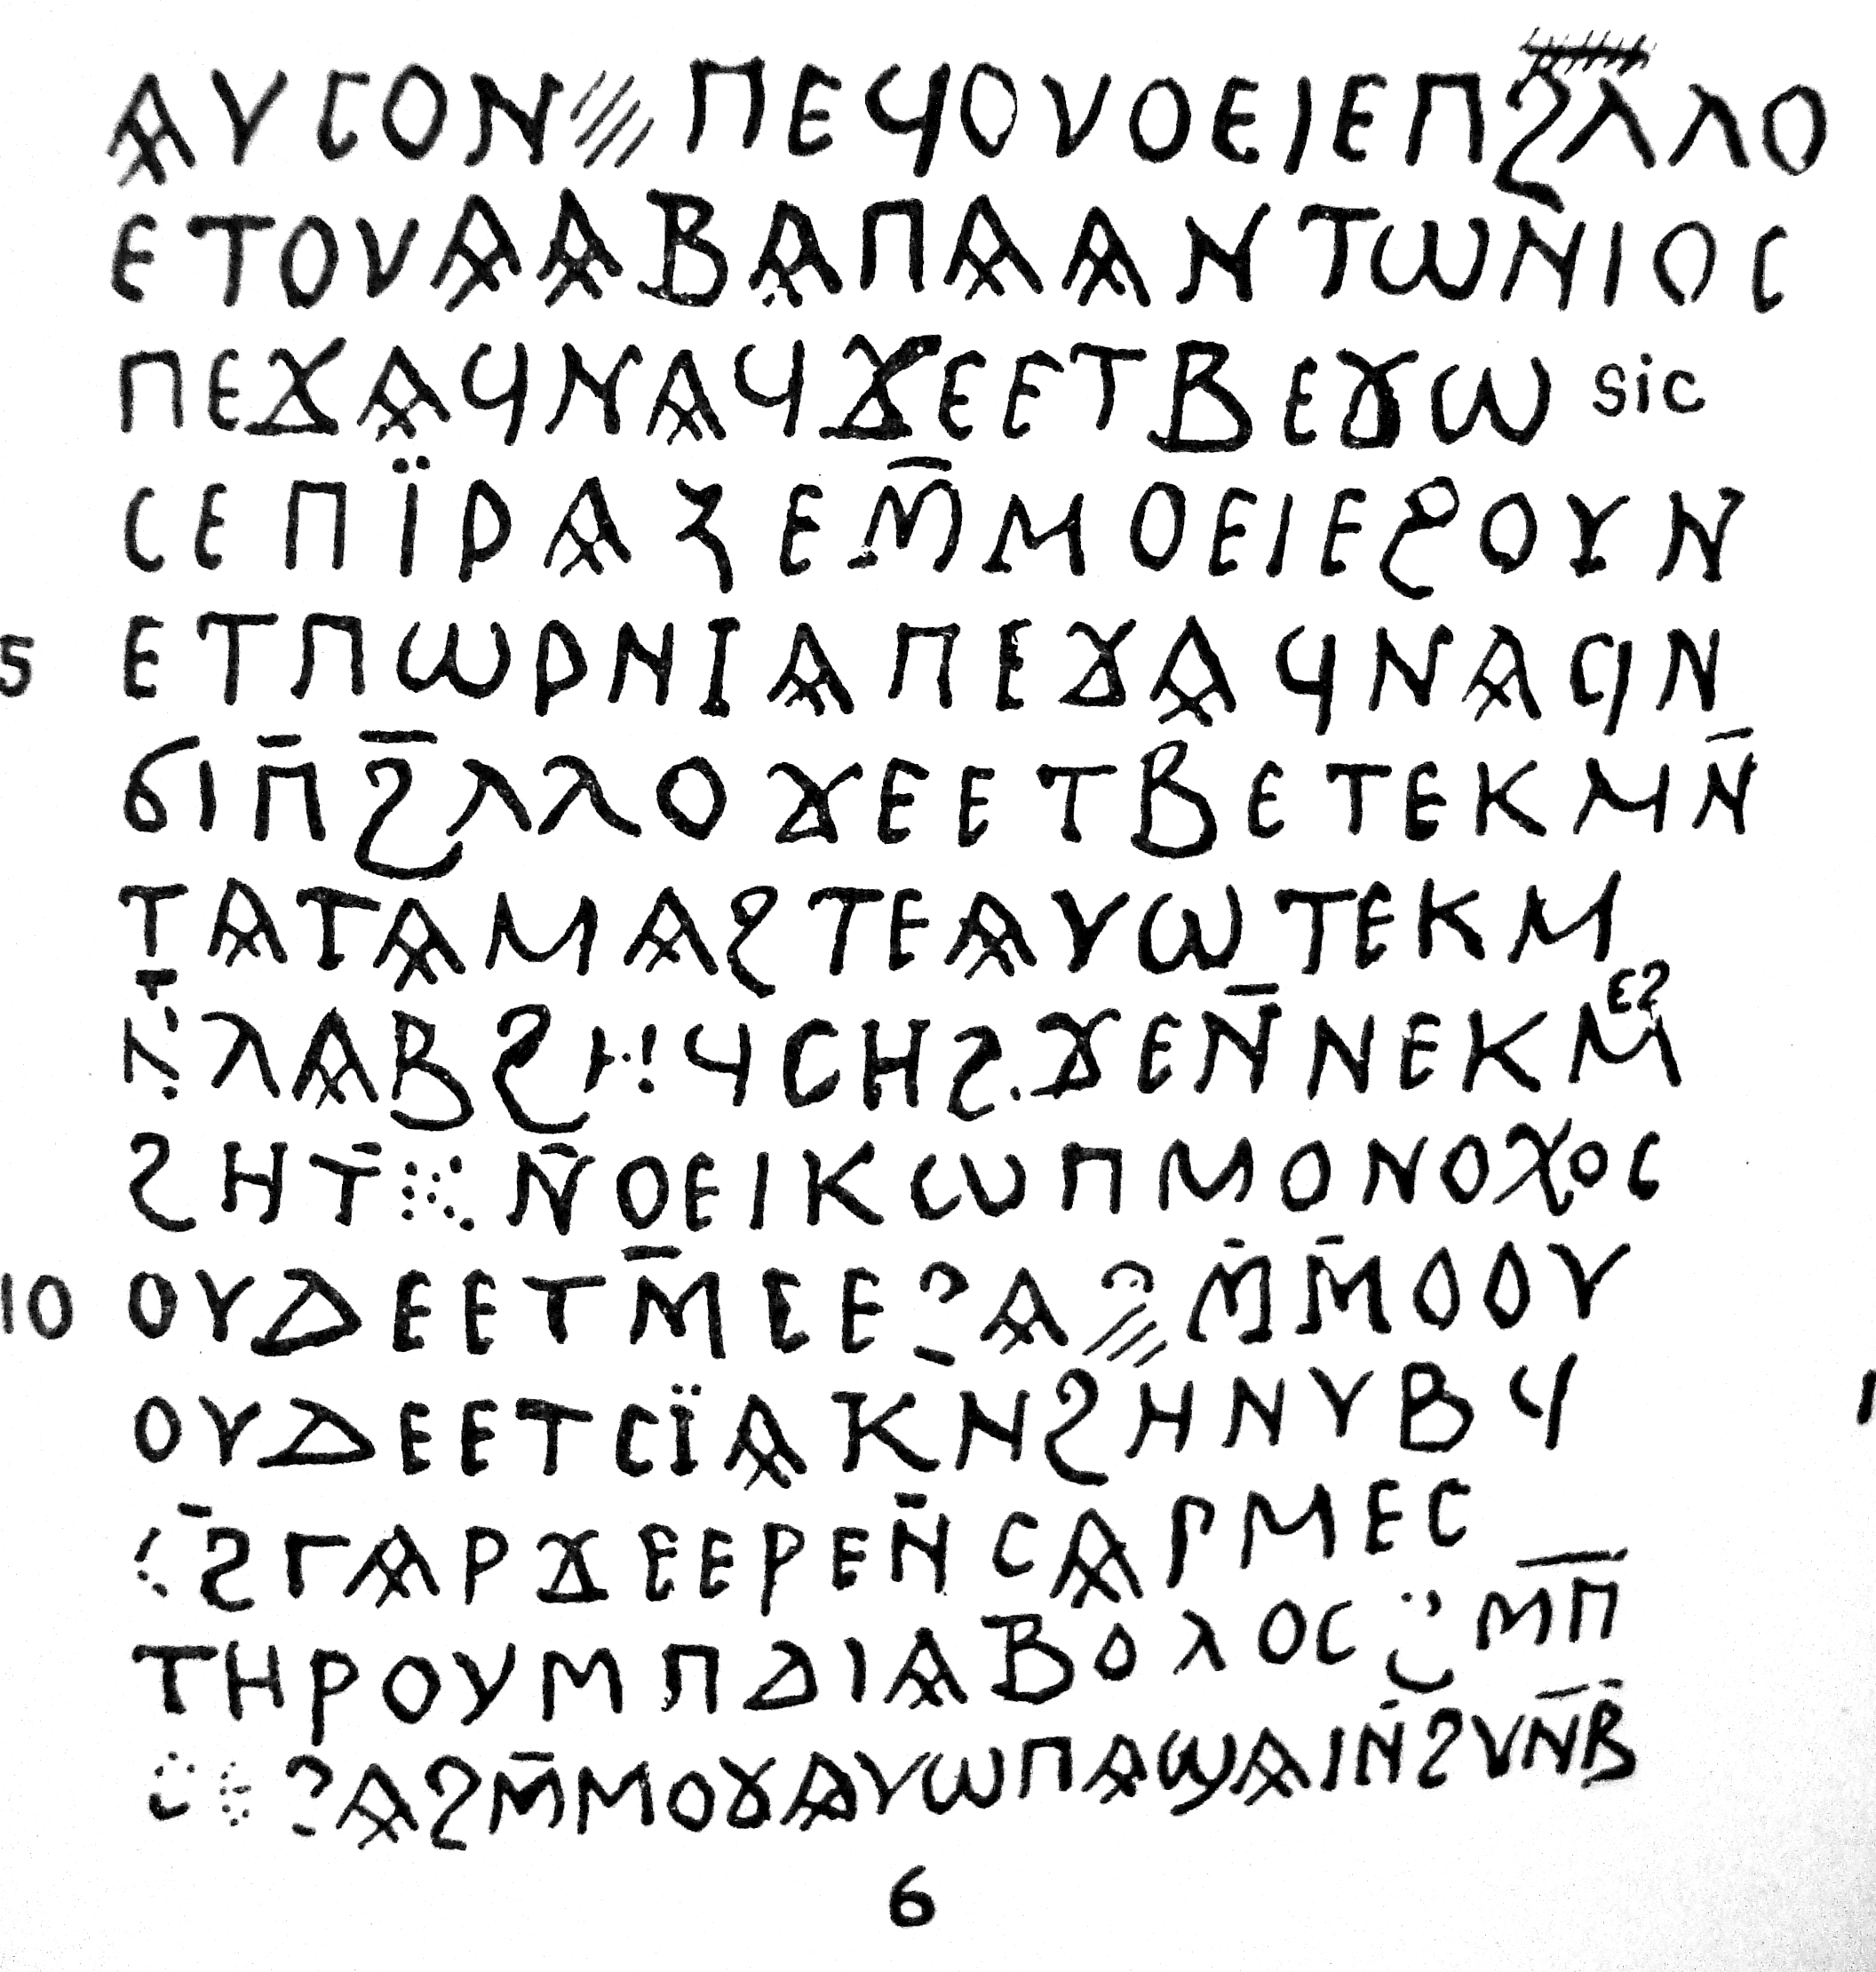 ⲀⲨⲤⲞⲚ ⲠⲈϤⲞⲨⲞⲈⲒⲈⲠϨⲖⲖⲞ
ⲈⲦⲞⲨⲀⲀⲂⲀⲠⲀⲀⲚⲦⲰⲚⲒⲞⲤ
ⲠⲈϪⲀϤⲚⲀϤϪⲈⲈⲦⲂⲈϪⲰ sic
ⲤⲈⲠⲒ̈ⲢⲀⲌⲈⲘ̄ⲘⲞⲈⲒⲈϨⲞⲨⲚ
5 ⲈⲦⲠⲰⲢⲚⲒⲀⲠⲈϪⲀϤⲚⲀϤⲚ
ϬⲒⲠ̄Ϩ̄ⲖⲖⲞϪⲈⲈⲦⲂⲈⲦⲈⲔⲘⲚ̄
ⲦⲀⲦⲀⲘⲀϨⲦⲈⲀⲨⲰⲦⲈⲔⲘ
Ⲛ̄ⲖⲀⲂϨⲎϤⲤⲎϨ.ϪⲈⲚ̄ⲚⲈⲔⲘⲈϨ
ϨⲎⲦ̄ⲕ̣Ⲛ̄ⲞⲈⲒⲔⲰⲠⲘⲞⲚⲞⲬⲞⲤ
10 ⲞⲨⲆⲈⲈⲦⲘ̄ⲈⲈϨⲀ Ⲙ̄Ⲙ̄ⲞⲞⲨ
ⲞⲨⲆⲈⲈⲦⲤⲒ̈ⲀⲔⲚϨⲎⲚⲨⲂϤ
Ϩ̄ⲄⲀⲢϪⲈⲈⲢⲈⲚ̄ⲤⲀⲢⲘⲈⲤ
ⲦⲎⲢⲞⲨⲘⲠⲆⲒⲀⲂⲞⲖⲞⲤ Ⲙ̄Ⲡ̄
ϨⲀϨⲘ̄ⲘⲞⲨⲀⲨⲰⲠⲀϢⲀⲒⲚ̄ϨⲨⲚ̄Ⲃ̄
6